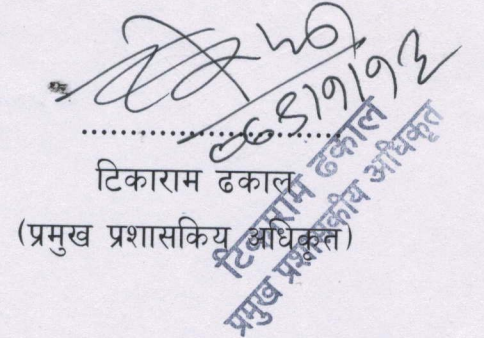 टिकाराम ढकाल
(प्रमुख प्रशासकिय अधिकृत)
टिकाराम ढकाल
प्रमुख प्रशासकीय अधिकृत